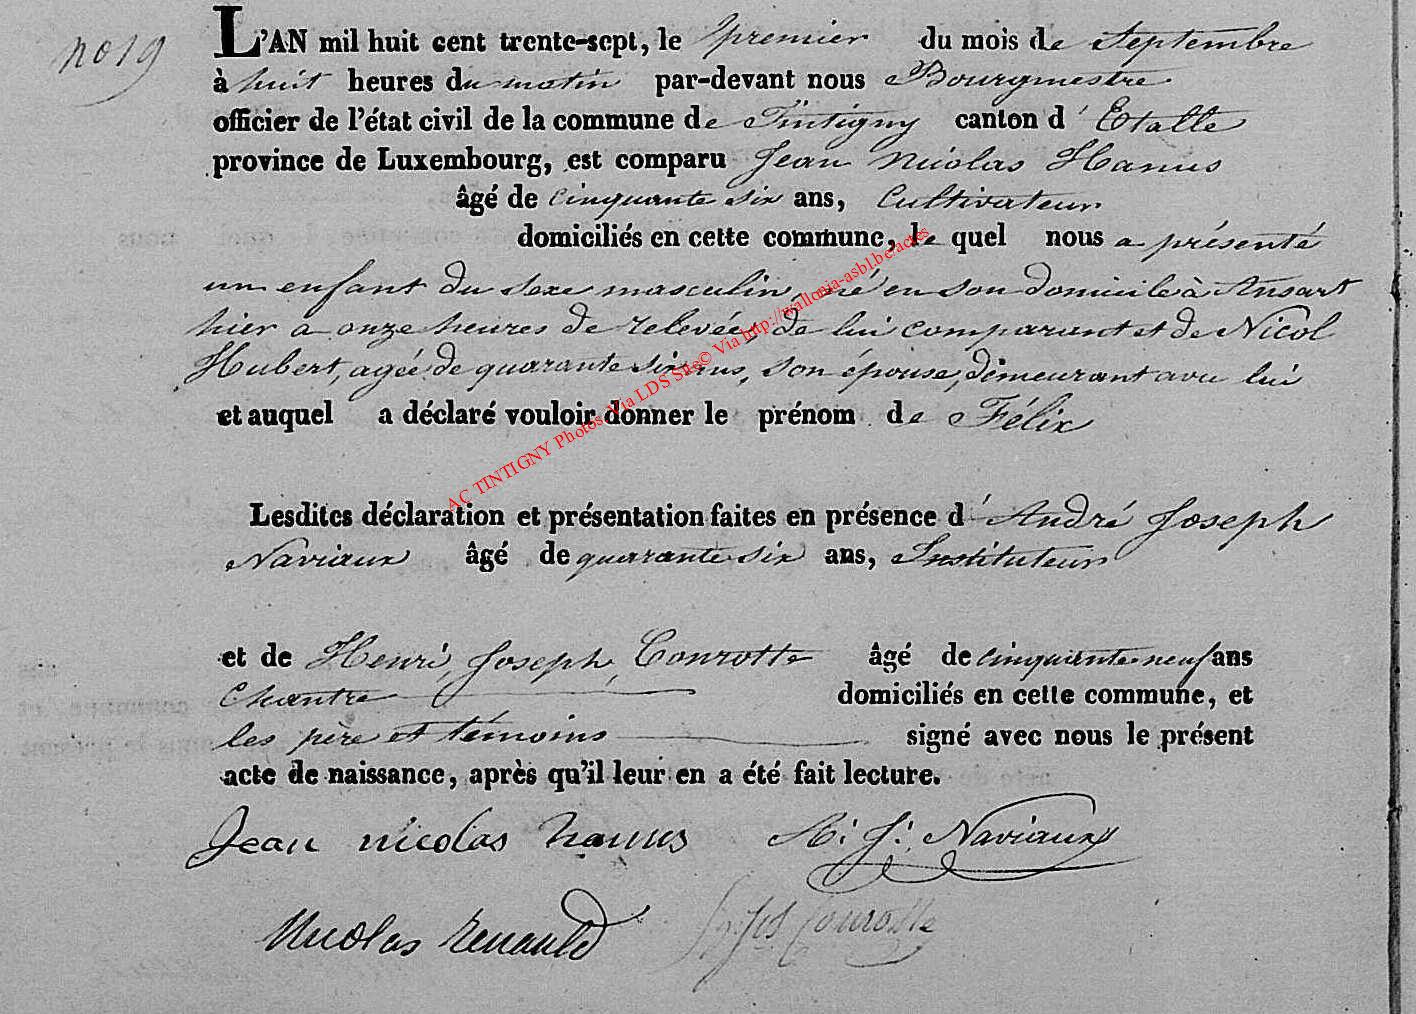 no 19
L'AN mil huit cent trente-sept, le premier du mois de Septembre
à huit heures du matin par-devant nous Bourgmestre
officier de l'état civil de la commune de Tintigny canton d'Etalle
province de Luxembourg, est comparu Jean Nicolas Hanus
âgé de cinquante six ans, Cultivateur
domiciliés en cette commune, le quel nous a présenté
un enfant du sexe masculin, né en son domicile à Ansart
hier a onze heures de relevée, de lui comparant et de Nicol
Hubert, agée de quarante six ans, son épouse, demeurant avec lui
et auquel a déclaré vouloir donner le prénom de Félix
AC TINTIGNY Photos Via LDS Site© Via http://wallonia-asbl.be/actes
Lesdites déclaration et présentation faites en présence d'André Joseph
Naviaux âgé de quarante six ans, Instituteur
et de Henri, Joseph, Conrotte âgé de cinquante neuf ans
Chantre domiciliés en cette commune, et
les père et témoins signé avec nous le présent
acte de naissance, après qu'il leur en a été fait lecture.
Jean nicolas hanus A: J: Naviaux
Nicolas Renauld Conrotte